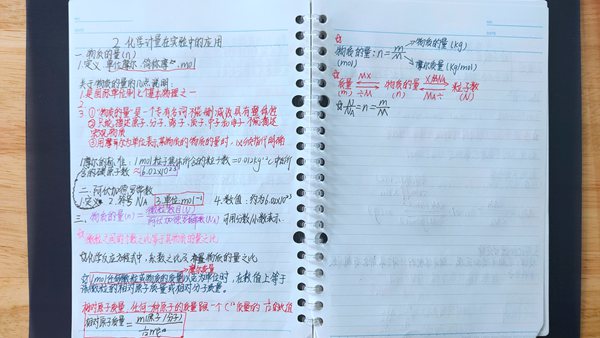 2. 化学计量在实验中的应用
一.物质的量(n)
1.定义 单位摩尔 简称摩 mol
关于物质的量的几点说明:
1.是国际单位制七个基本物理之一
3.①"物质的量"是一个专有名词不能删减该具有整体性
②只能描述原子、分子、离子、质子、中子、电子 不能描述
宏观物质
③用摩尔为单位表示某物质的物质的量时,以
1摩尔的标准:1mol粒子集体所含的粒子数=0.012kg ¹²C中所
含的碳原子数≈6.02×10²³
二.阿伏加德罗常数
1.定义 2.符号NA 3.单位mol⁻¹ 4.数值:约为6.02×10²³
三、物质的量(n)=微粒数目(N)/阿伏加德罗常数(NA) 可用分数/小数表示.
☆微粒之间的个数之比等于其物质的量之比
☆化学反应方程式中,系数之比及 物质的量之比
摩尔质量
☆1mol任何微粒或物质的质量以克为单位时,在数值上等于
该微粒的相对原子质量或相对分子质量。
相对原子质量:任何一种原子的质量跟一个C¹²质量的1/12的比值
相对原子质量=m(原子/分子)/
☆ 物质的质量(kg)
物质的量:n=m/M
(mol) 摩尔质量(kg/mol)
☆ ×M ×NA
质量 ⇌ 物质的量 ⇌ 粒子数
(m) ÷M (n) NA÷ (N)
☆N/NA=n=m/M